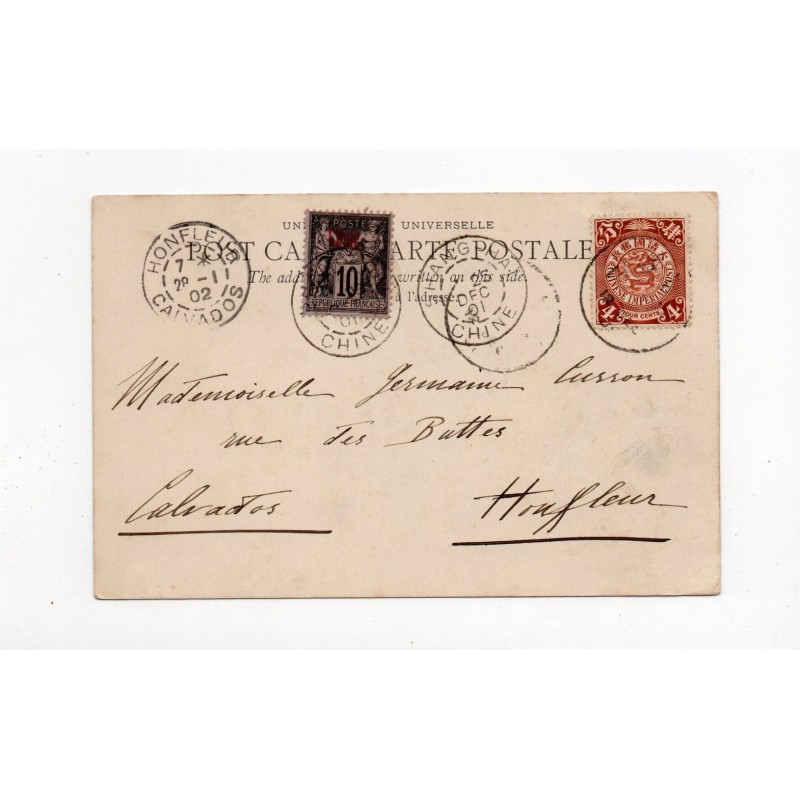 UNI UNIVERSELLE
POST CA CARTE POSTALE
The add written on this side.
à l'adresse.
HONFLEUR
7
28 -1
02
CALVADOS
POSTE
10
REPUBLIQUE FRANÇAISE
01
CHINE
SHANG-HAI
DEC
01
CHINE
CHINESE IMPERIAL POST
4 FOUR CENTS 4
Mademoiselle Germaine Cusson
rue des Buttes
Calvados Honfleur